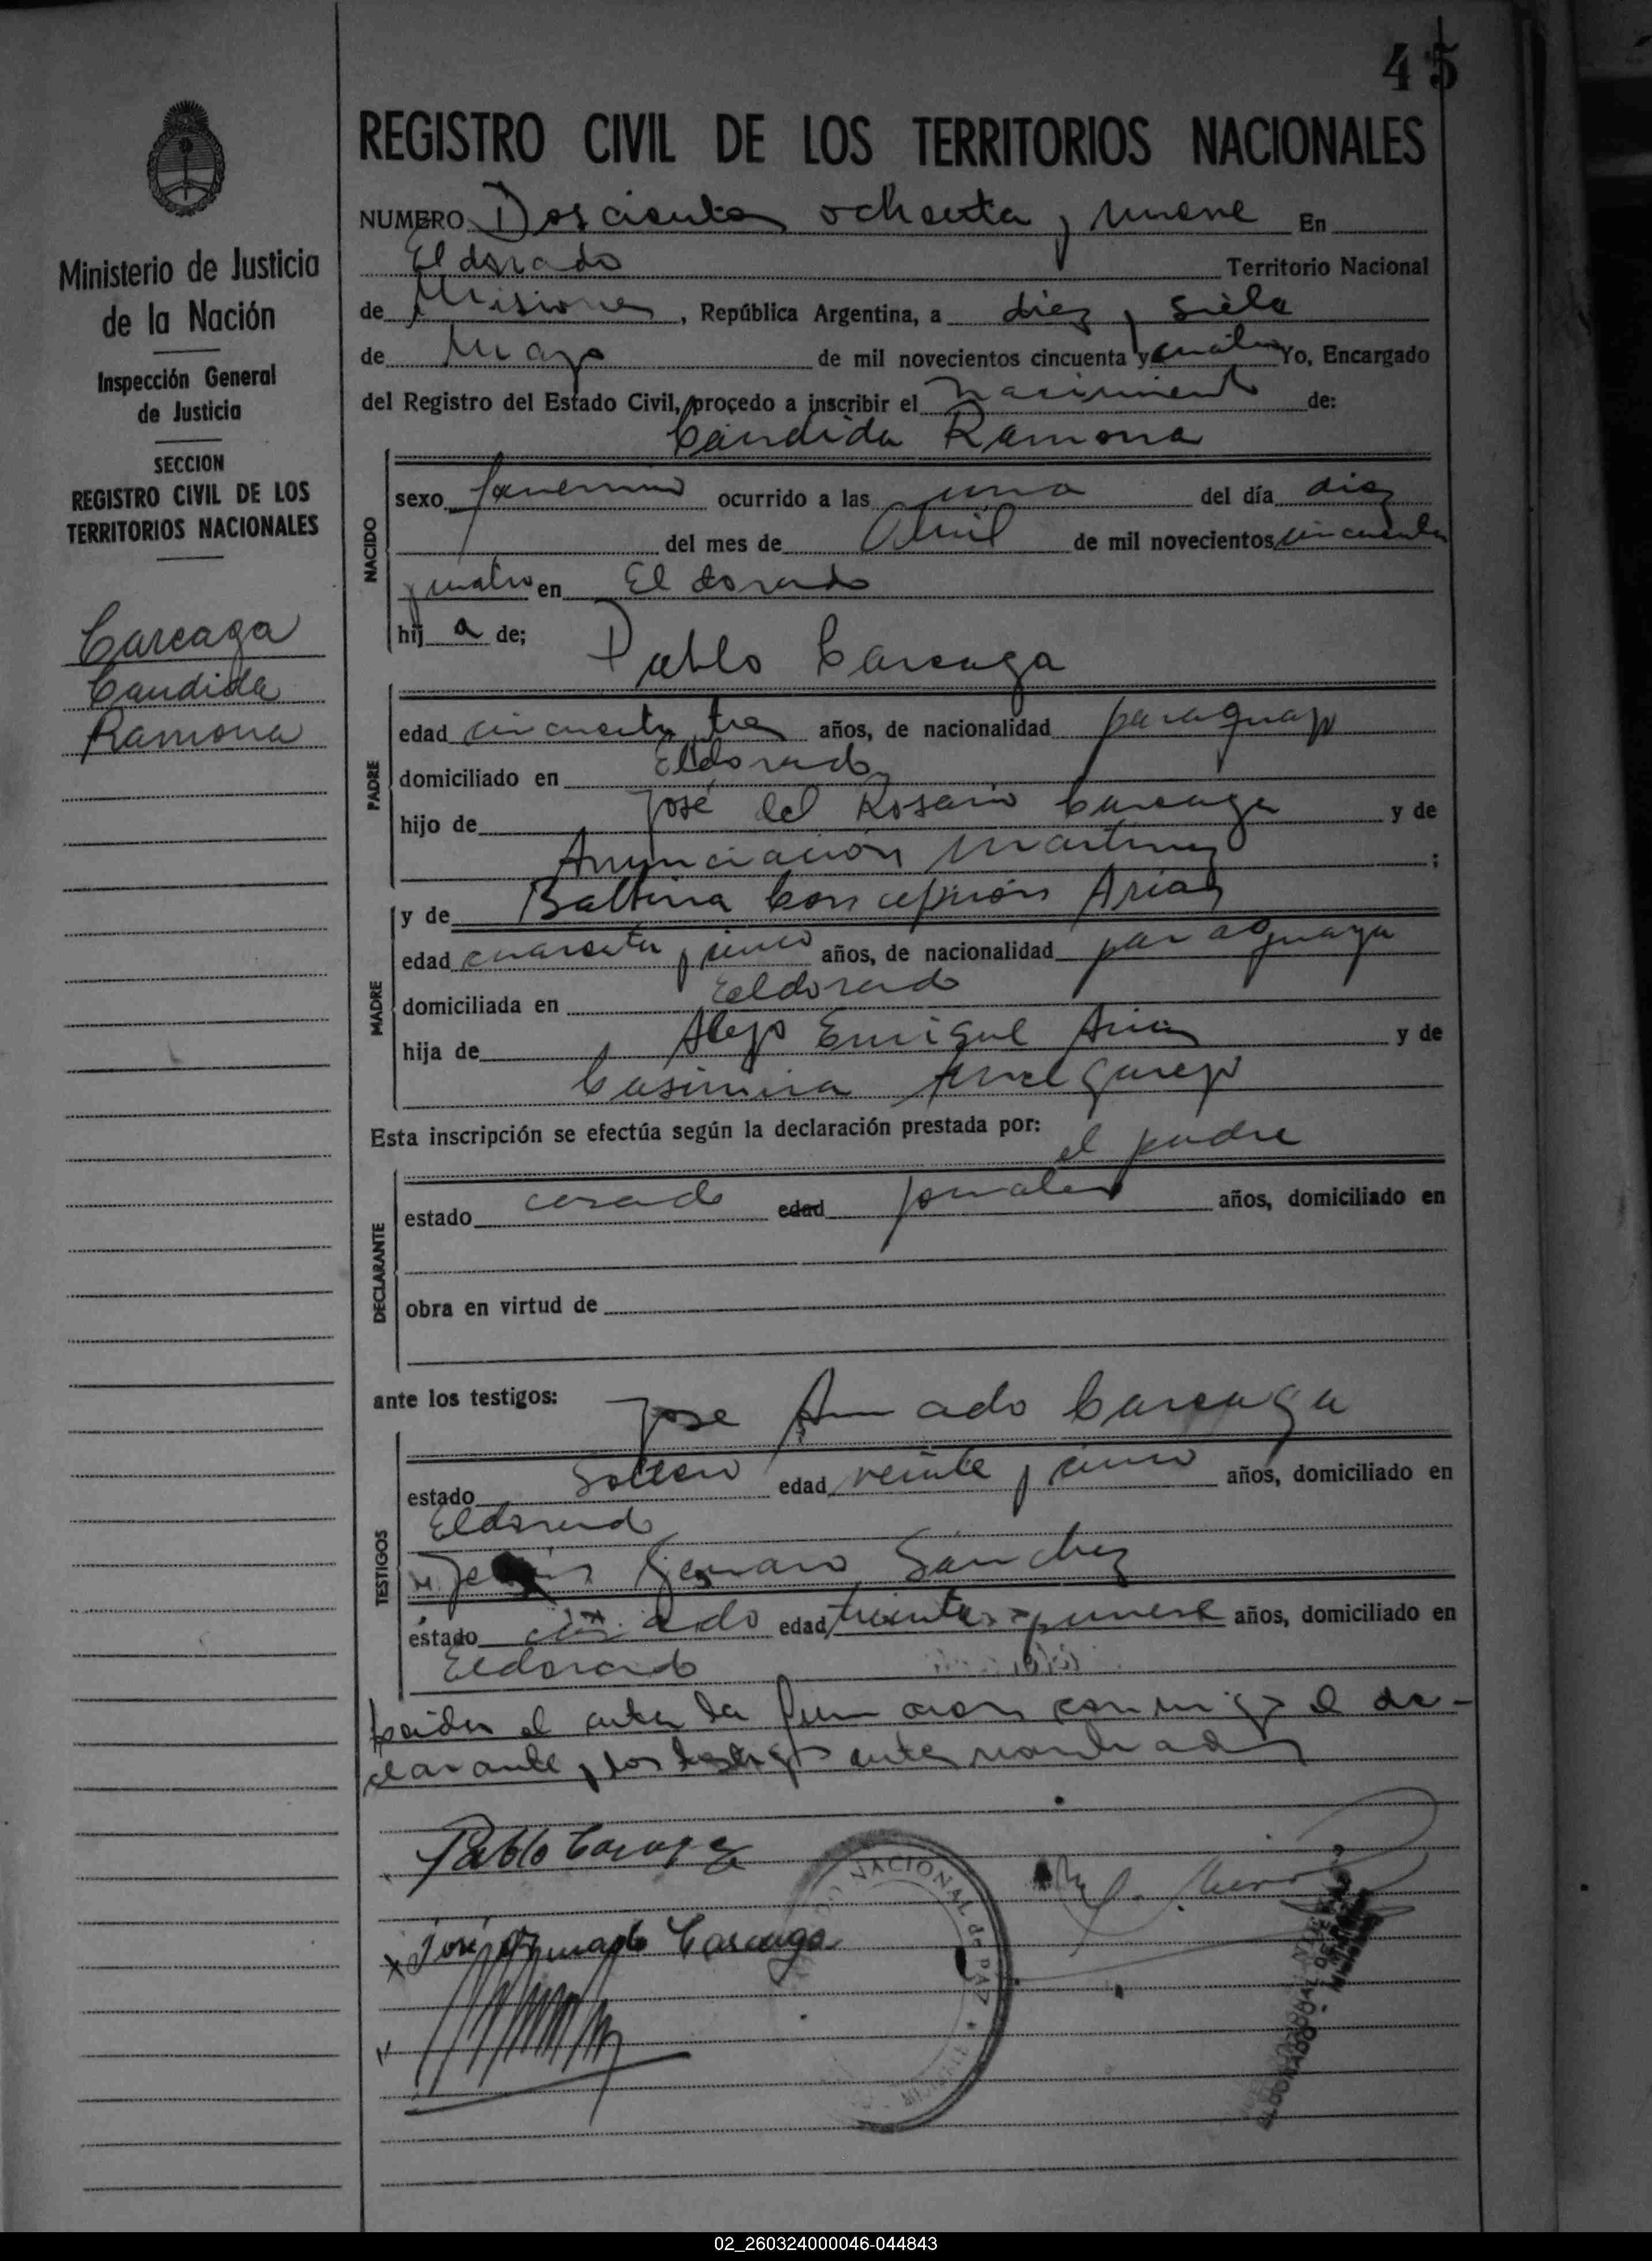 45
REGISTRO CIVIL DE LOS TERRITORIOS NACIONALES
NUMERO Doscientos ochenta y nueve En
Eldorado Territorio Nacional
de Misiones, República Argentina, a diez y siete
de Mayo de mil novecientos cincuenta y cuatro Yo, Encargado
del Registro del Estado Civil, procedo a inscribir el nacimiento de:
Cándida Ramona
NACIDO
sexo femenino ocurrido a las una del día diez
del mes de Abril de mil novecientos cincuenta
y cuatro en El dorado
hij a de;
Pablo Careaga
PADRE
edad cincuenta y tres años, de nacionalidad paraguayo
domiciliado en Eldorado
hijo de José del Rosario Careaga y de
Anunciación Martinez ;
MADRE
y de Balbina Concepción Arias
edad cuarenta y cinco años, de nacionalidad paraguaya
domiciliada en Eldorado
hija de Alejo Enrique Arias y de
Casimira
Esta inscripción se efectúa según la declaración prestada por:
el padre
DECLARANTE
estado casado edad jornalero años, domiciliado en
obra en virtud de
ante los testigos:
Jose Amado Careaga
TESTIGOS
estado Soltero edad veinte y cinco años, domiciliado en
Eldorado
Genaro Sánchez
estado casado edad treinta y nueve años, domiciliado en
Eldorado
Leida el acta la firmaron conmigo el de-
clarante y los testigos antes nombrados
Pablo Careaga
x José Amado Careaga
NACIONAL de PAZ
ELDORADO
Ministerio de Justicia
de la Nación
Inspección General
de Justicia
SECCION
REGISTRO CIVIL DE LOS
TERRITORIOS NACIONALES
Careaga
Candida
Ramona
02_260324000046-044843